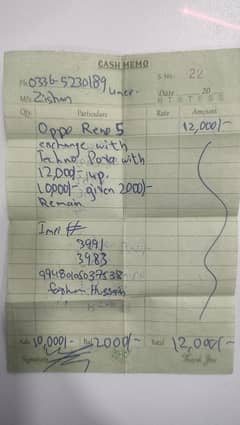 CASH MEMO
Ph 0336-5230189
S. No. 22
M/s Zishan
Date 20
Qty. Particulars Rate Amount
Oppo Reno 5 12,000/-
exchange with
Techno Pova with
12,000/- up.
10,000/- given 2000/-
Remain
Imei #
3991
3983
99480105037538
Hussain
Adv. 10,000/- Bal. 2000/- Total 12,000/-
Signature Thank You